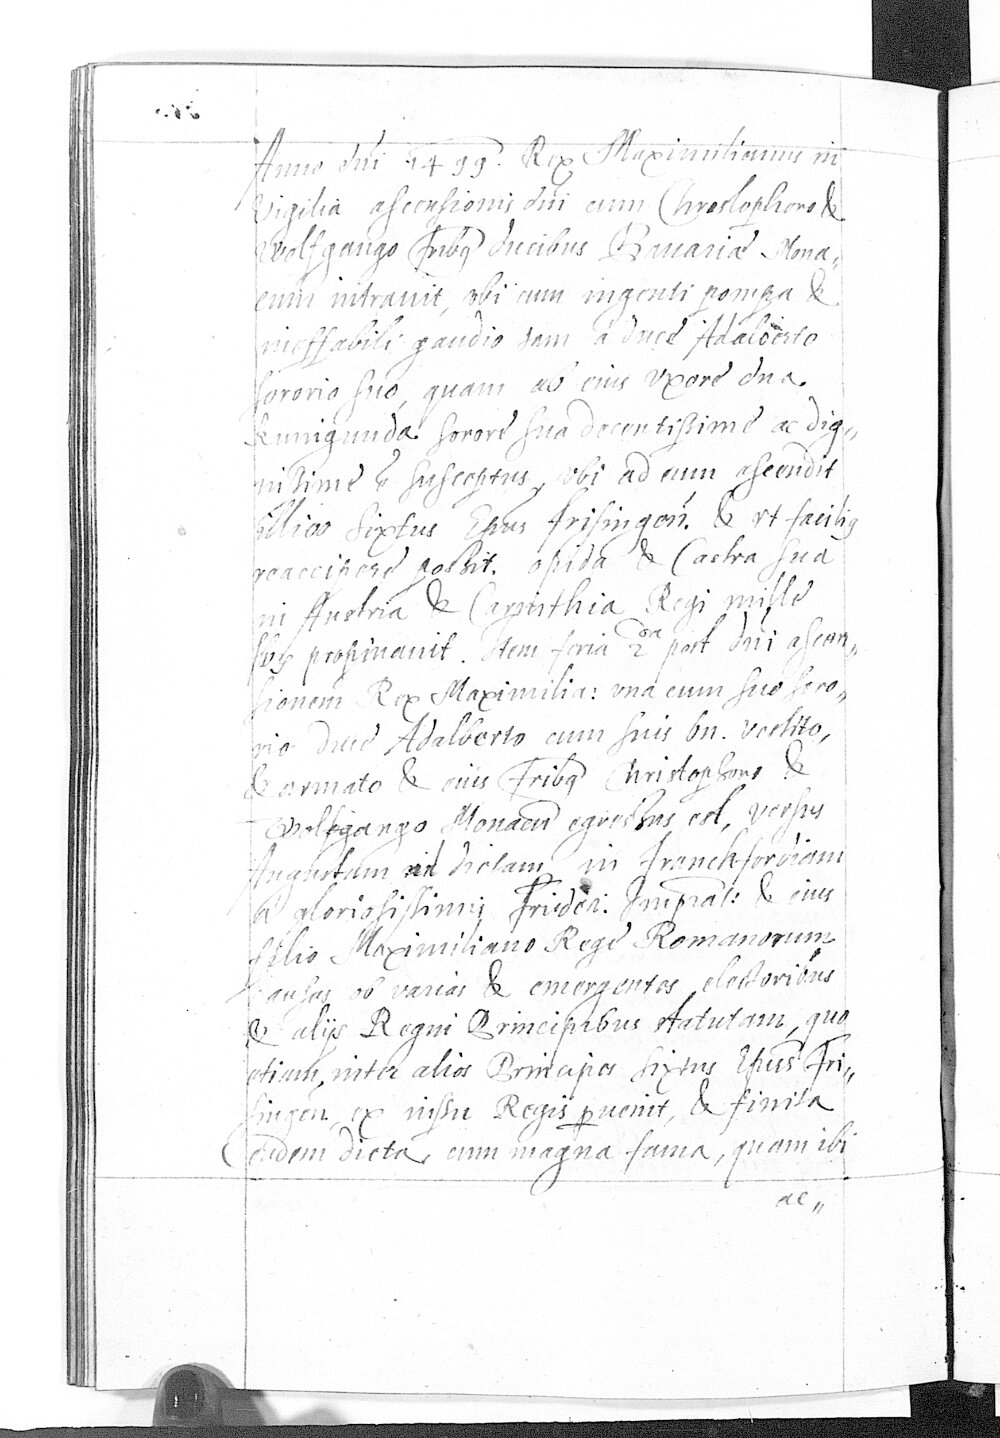 Anno dni 1499. Rex Maximilianus in
Vigilia ascensionis dni cum Christophoro &
Wolfgango Fribq ducibus Bauariæ Mona„
cum intrauit, vbi cum ingenti pompa &
ineffabili gaudio tam a duce Adalberto
sororio suo, quam ab eius vxore dna
Kunigunda sorore sua decentissime ac dig„
nissime e susceptus, vbi ad eum ascendit
illico Sixtus Epus frisingen. & vt facilig
reaccipere possit. opida & Castra sua
in Austria & Carinthia Regi mille
propinauit. Item feria 2 post dni ascen„
sionem Rex Maximilia: vna cum suo soro„
rio duce Adalberto cum suis bn. vestito,
& armato & eius Fribq Christophoro &
Wolfgango Monacu egressus est, versus
Augustam ad dietam in Franckfordiam
a gloriosissimis Frideri. Imprat: & eius
filio Maximiliano Rege Romanorum
causas ob varias & emergentes electoribus
& alijs Regni Principibus statutam, quo
etiam, inter alios Principes Sixtus Epus Fri„
singen, ex iussu Regis puenit, & finita
eadem dieta, cum magna fama, quam ibi
ac„